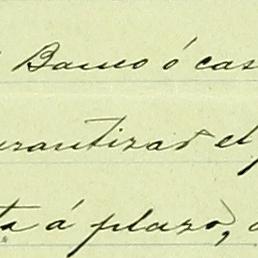 Banco ó cas
arantizar el
ta á plazo,